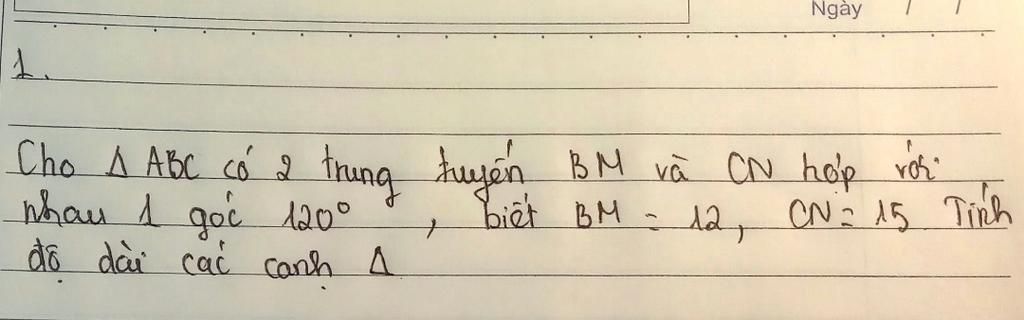 Ngày / /
1.
Cho Δ ABC có 2 trung tuyến BM và CN hợp với
nhau 1 góc 120°, biết BM = 12, CN = 15 Tính
độ dài các cạnh Δ